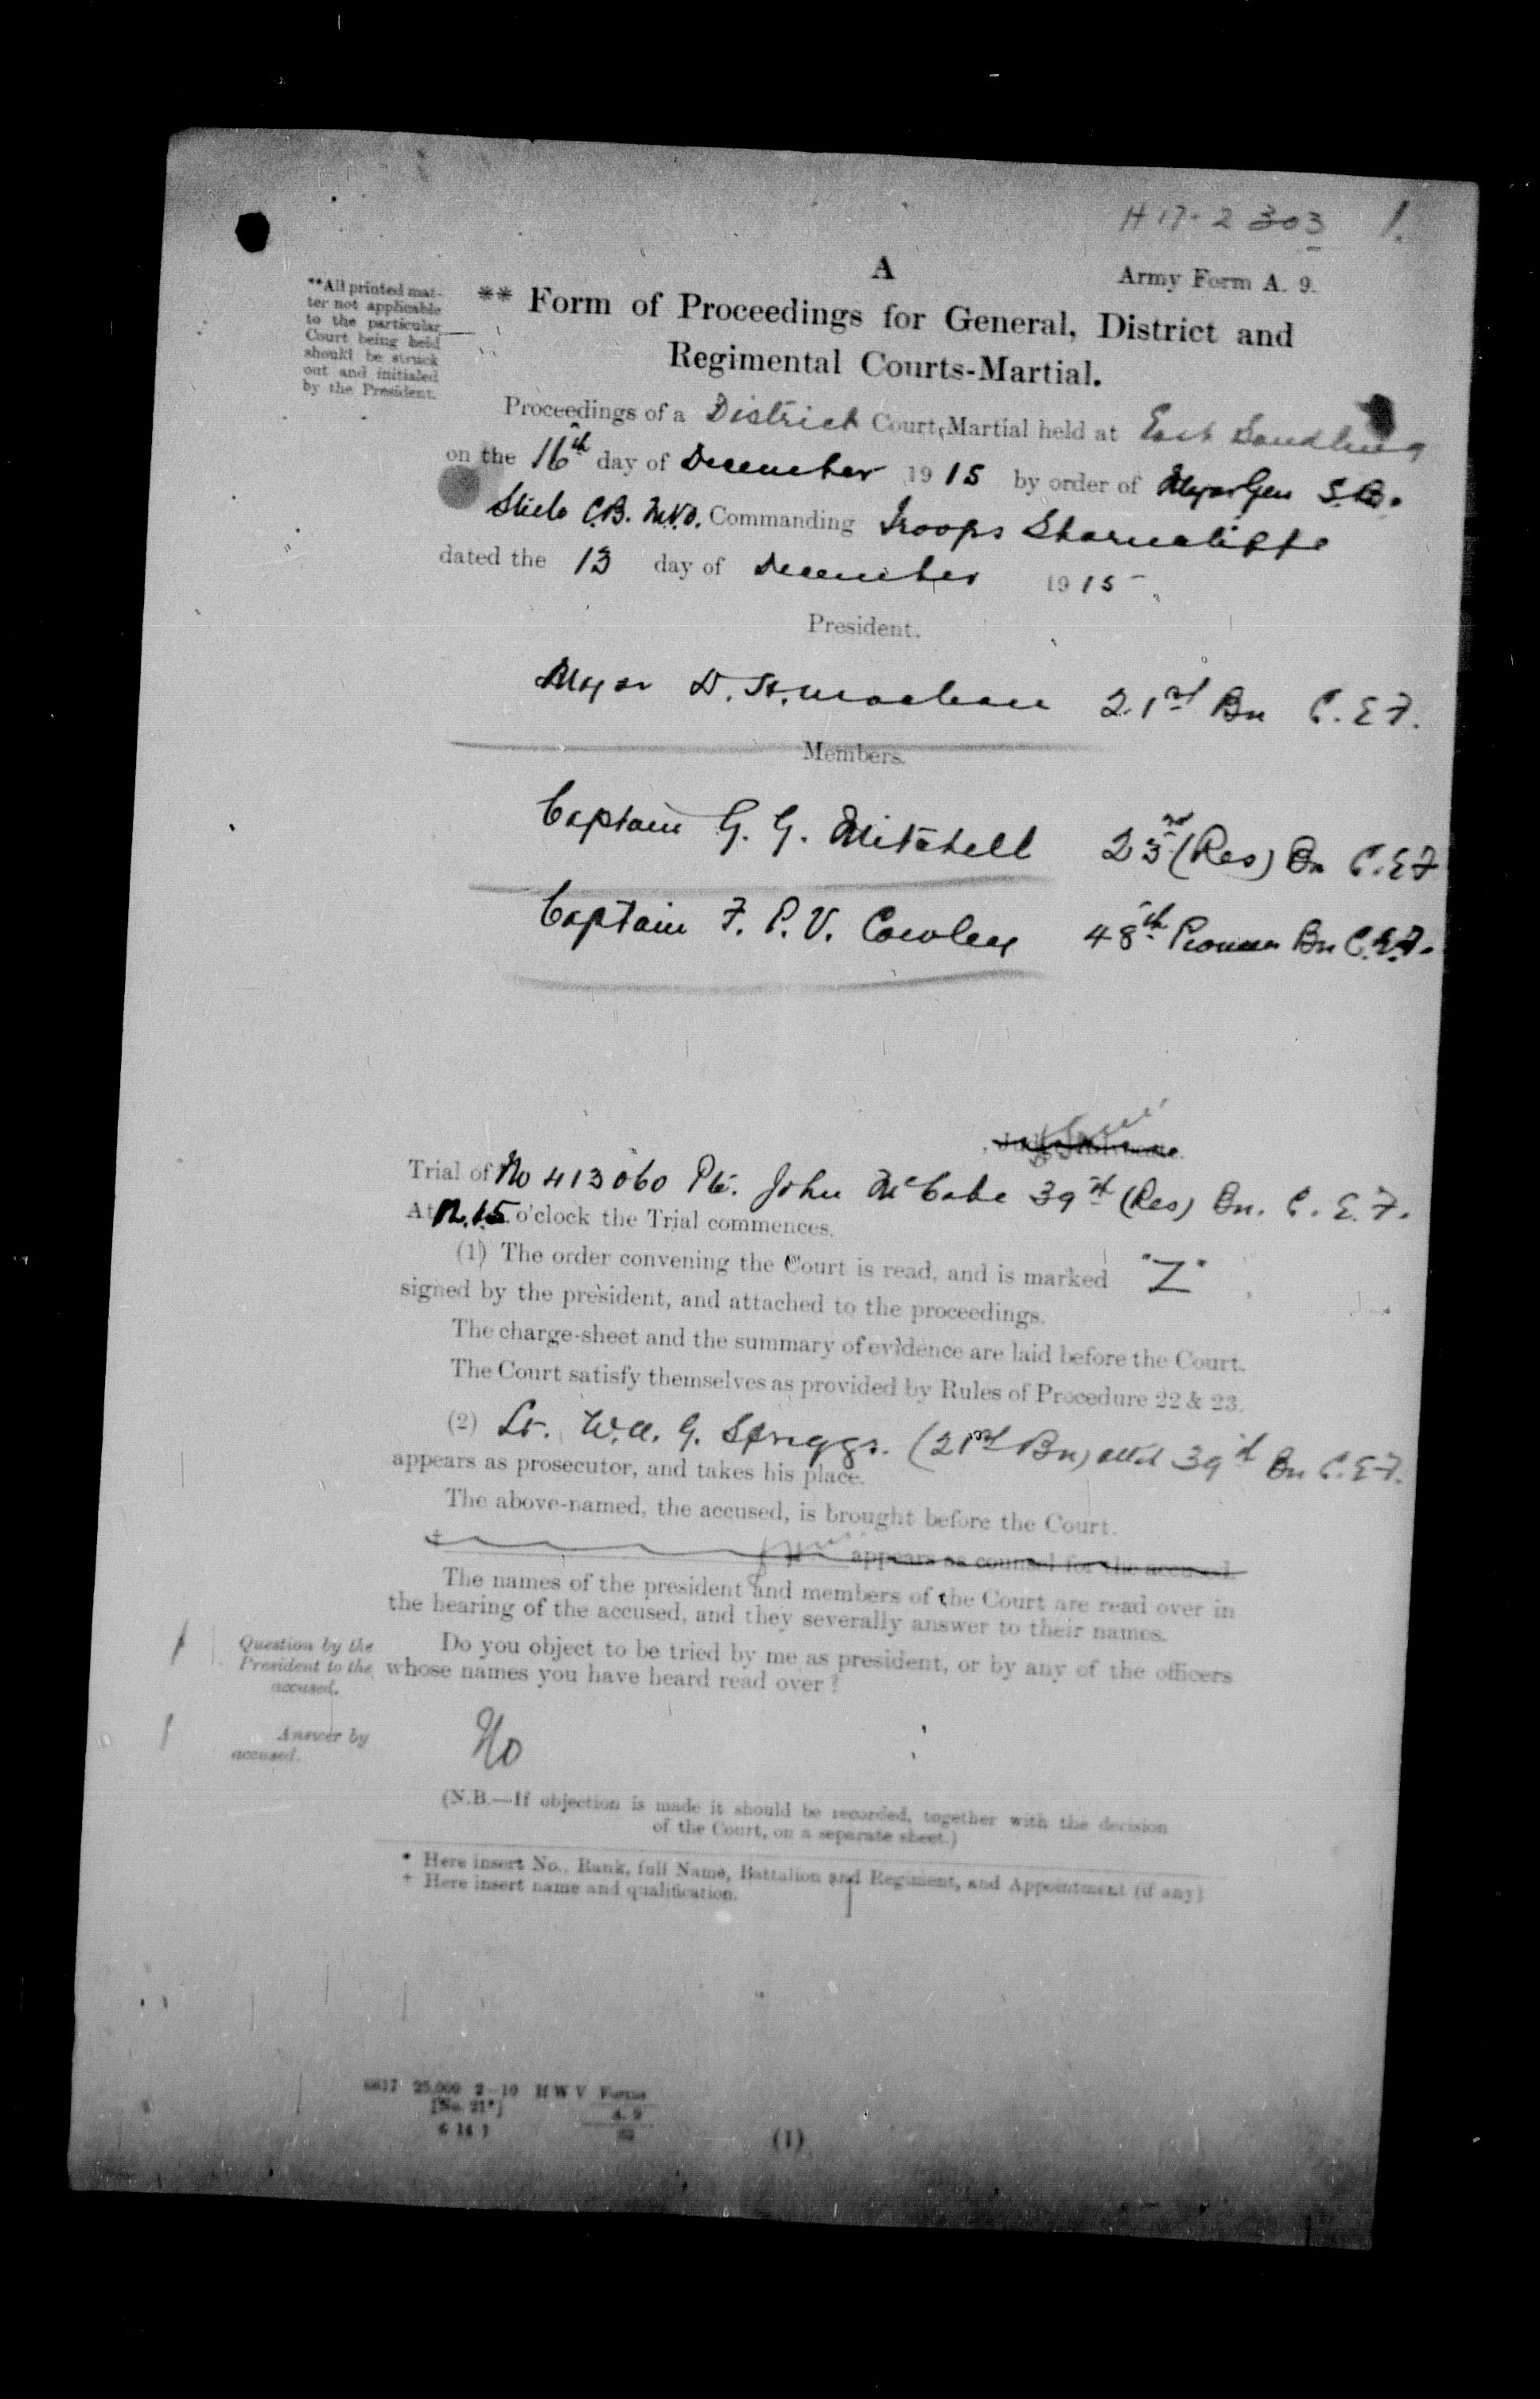 H 17-2 303 1.
A
Army Form A. 9.
**All printed mat-
ter not applicable
to the particular
Court being held
should be struck
out and initialed
by the President.
** Form of Proceedings for General, District and
Regimental Courts-Martial.
Proceedings of a District Court-Martial held at East Sandling
on the 16th day of December 1915 by order of Major Gen S.B.
Steele C.B. M.V.O. Commanding Troops Shorncliffe
dated the 13 day of December 1915.
President.
Major D. H. Maclean 21st Bn C.E.F.
Members.
Captain G. G. Mitchell 23rd (Res) Bn C.E.F
Captain F. P. V. Cowley 48th Pioneer Bn C.E.F.
Trial of No 413060 Pte. John McCabe 39th (Res) Bn. C.E.F.
At 12.15 o'clock the Trial commences.
(1) The order convening the Court is read, and is marked "Z"
signed by the president, and attached to the proceedings.
The charge-sheet and the summary of evidence are laid before the Court.
The Court satisfy themselves as provided by Rules of Procedure 22 & 23.
(2) Lt. W.A. G. Spriggs. (21st Bn) att'd 39th Bn C.E.F.
appears as prosecutor, and takes his place.
The above-named, the accused, is brought before the Court.
† appears as counsel for the accused.
The names of the president and members of the Court are read over in
the hearing of the accused, and they severally answer to their names.
Question by the
President to the
accused.
Do you object to be tried by me as president, or by any of the officers
whose names you have heard read over?
Answer by
accused.
No
(N.B.—If objection is made it should be recorded, together with the decision
of the Court, on a separate sheet.)
* Here insert No., Rank, full Name, Battalion and Regiment, and Appointment (if any)
† Here insert name and qualification.
25,000 2-10 H W V Forms
A. 9
(1)